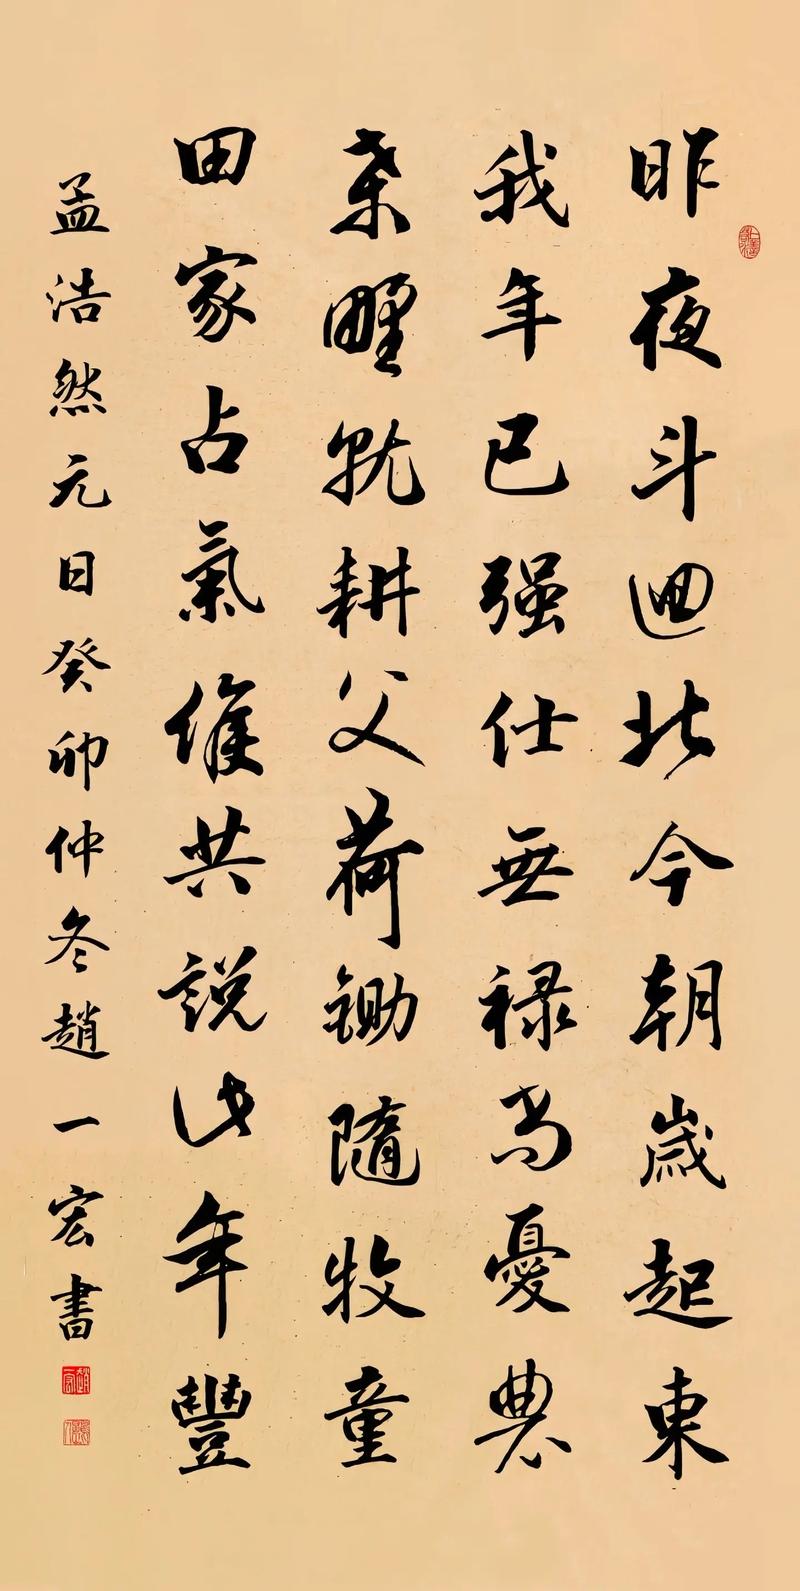 昨夜斗迴北今朝歲起東
我年已强仕無禄尚憂農
桑野就耕父荷鋤隨牧童
田家占氣候共說此年豐
孟浩然元日癸卯仲冬趙一宏書